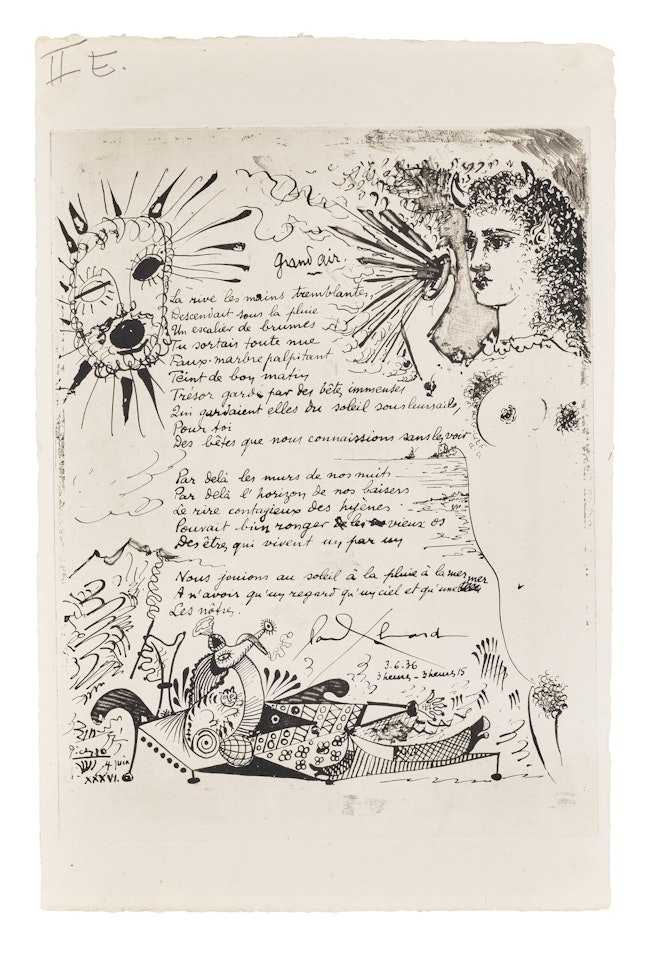 II E.
Grand air.
La rive les mains tremblantes,
Descendait sous la pluie
Un escalier de brumes
Tu sortais toute nue
Faux marbre palpitant
Teint de bon matin
Trésor gardé par des bêtes immenses
Qui gardaient elles du soleil sous leurs ailes
Pour toi
Des bêtes que nous connaissions sans les voir
Par delà les murs de nos nuits
Par delà l'horizon de nos baisers
Le rire contagieux des hyènes
Pouvait bien ronger les vieux os
Des êtres qui vivent un par un
Nous jouions au soleil à la pluie à la mer
A n'avoir qu'un regard qu'un ciel et qu'une mer
Les nôtres
Paul Eluard
3.6.36
3 heures - 3 heures 15
Picasso
4 juin
XXXVI.